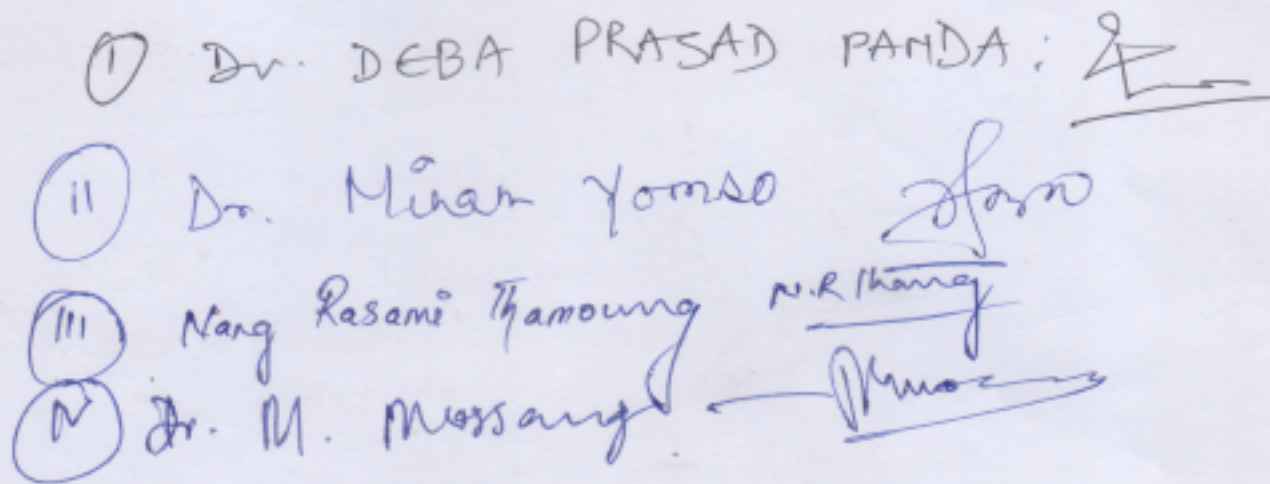 I Dr. DEBA PRASAD PANDA:
II Dr. Minam Yomso
III Nang Rasami Thamoung N.R Thamg
IV Dr. M. Mossang